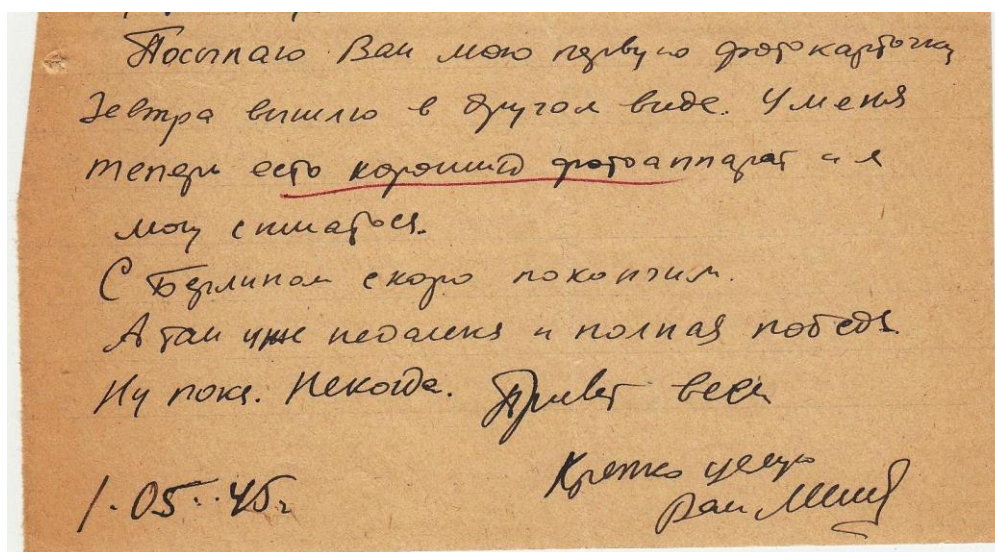 Посылаю Вам мою первую фотокарточку
Завтра вышлю в другом виде. У меня
теперь есть хороший фотоаппарат и я
могу сниматься.
С Берлином скоро покончим.
А там уже недалека и полная победа.
Ну пока. Некогда. Привет всем
Крепко целую
1.05.45г Ваш